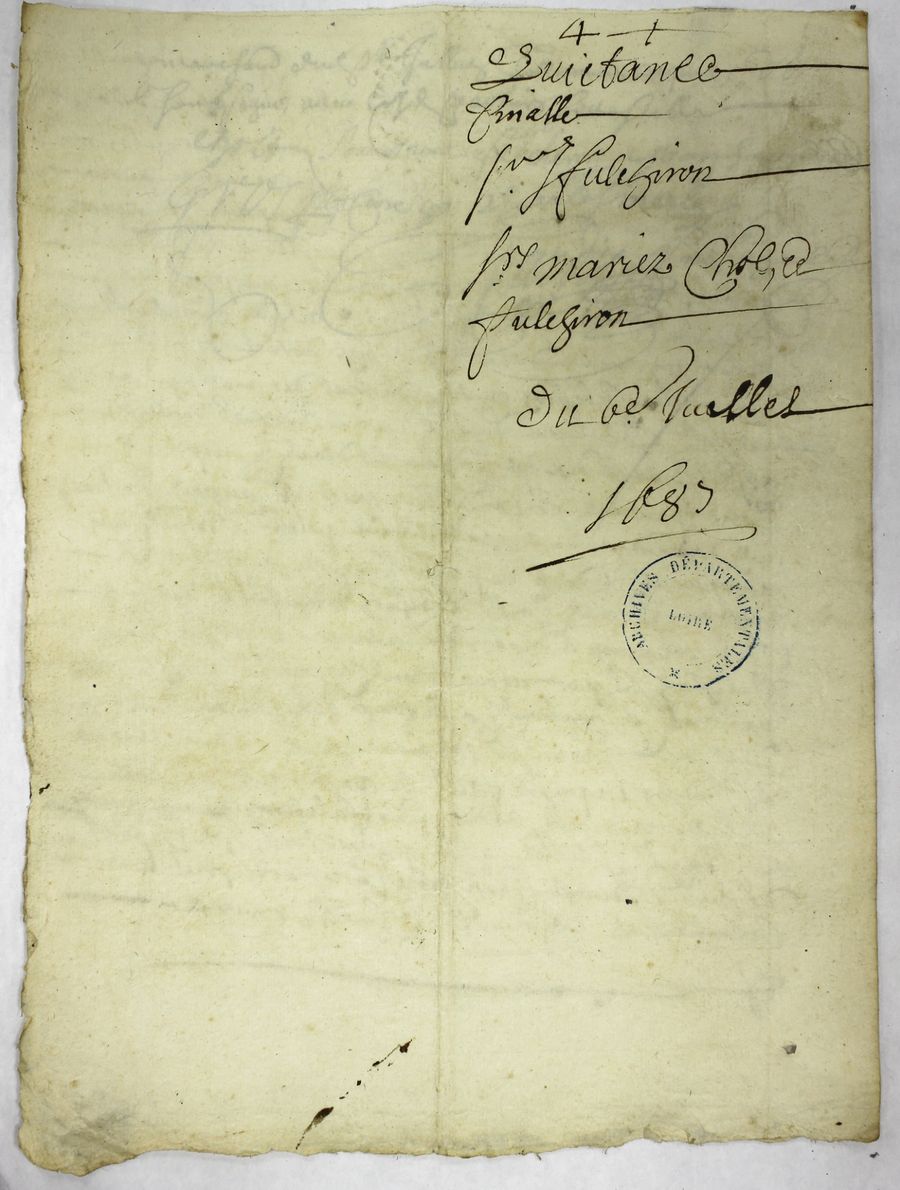 4 +
Quictance
finalle
pour fulchiron
mariez Chol, et
fulchiron
du 6e Juillet
1687
ARCHIVES DÉPARTEMENTALES
LOIRE